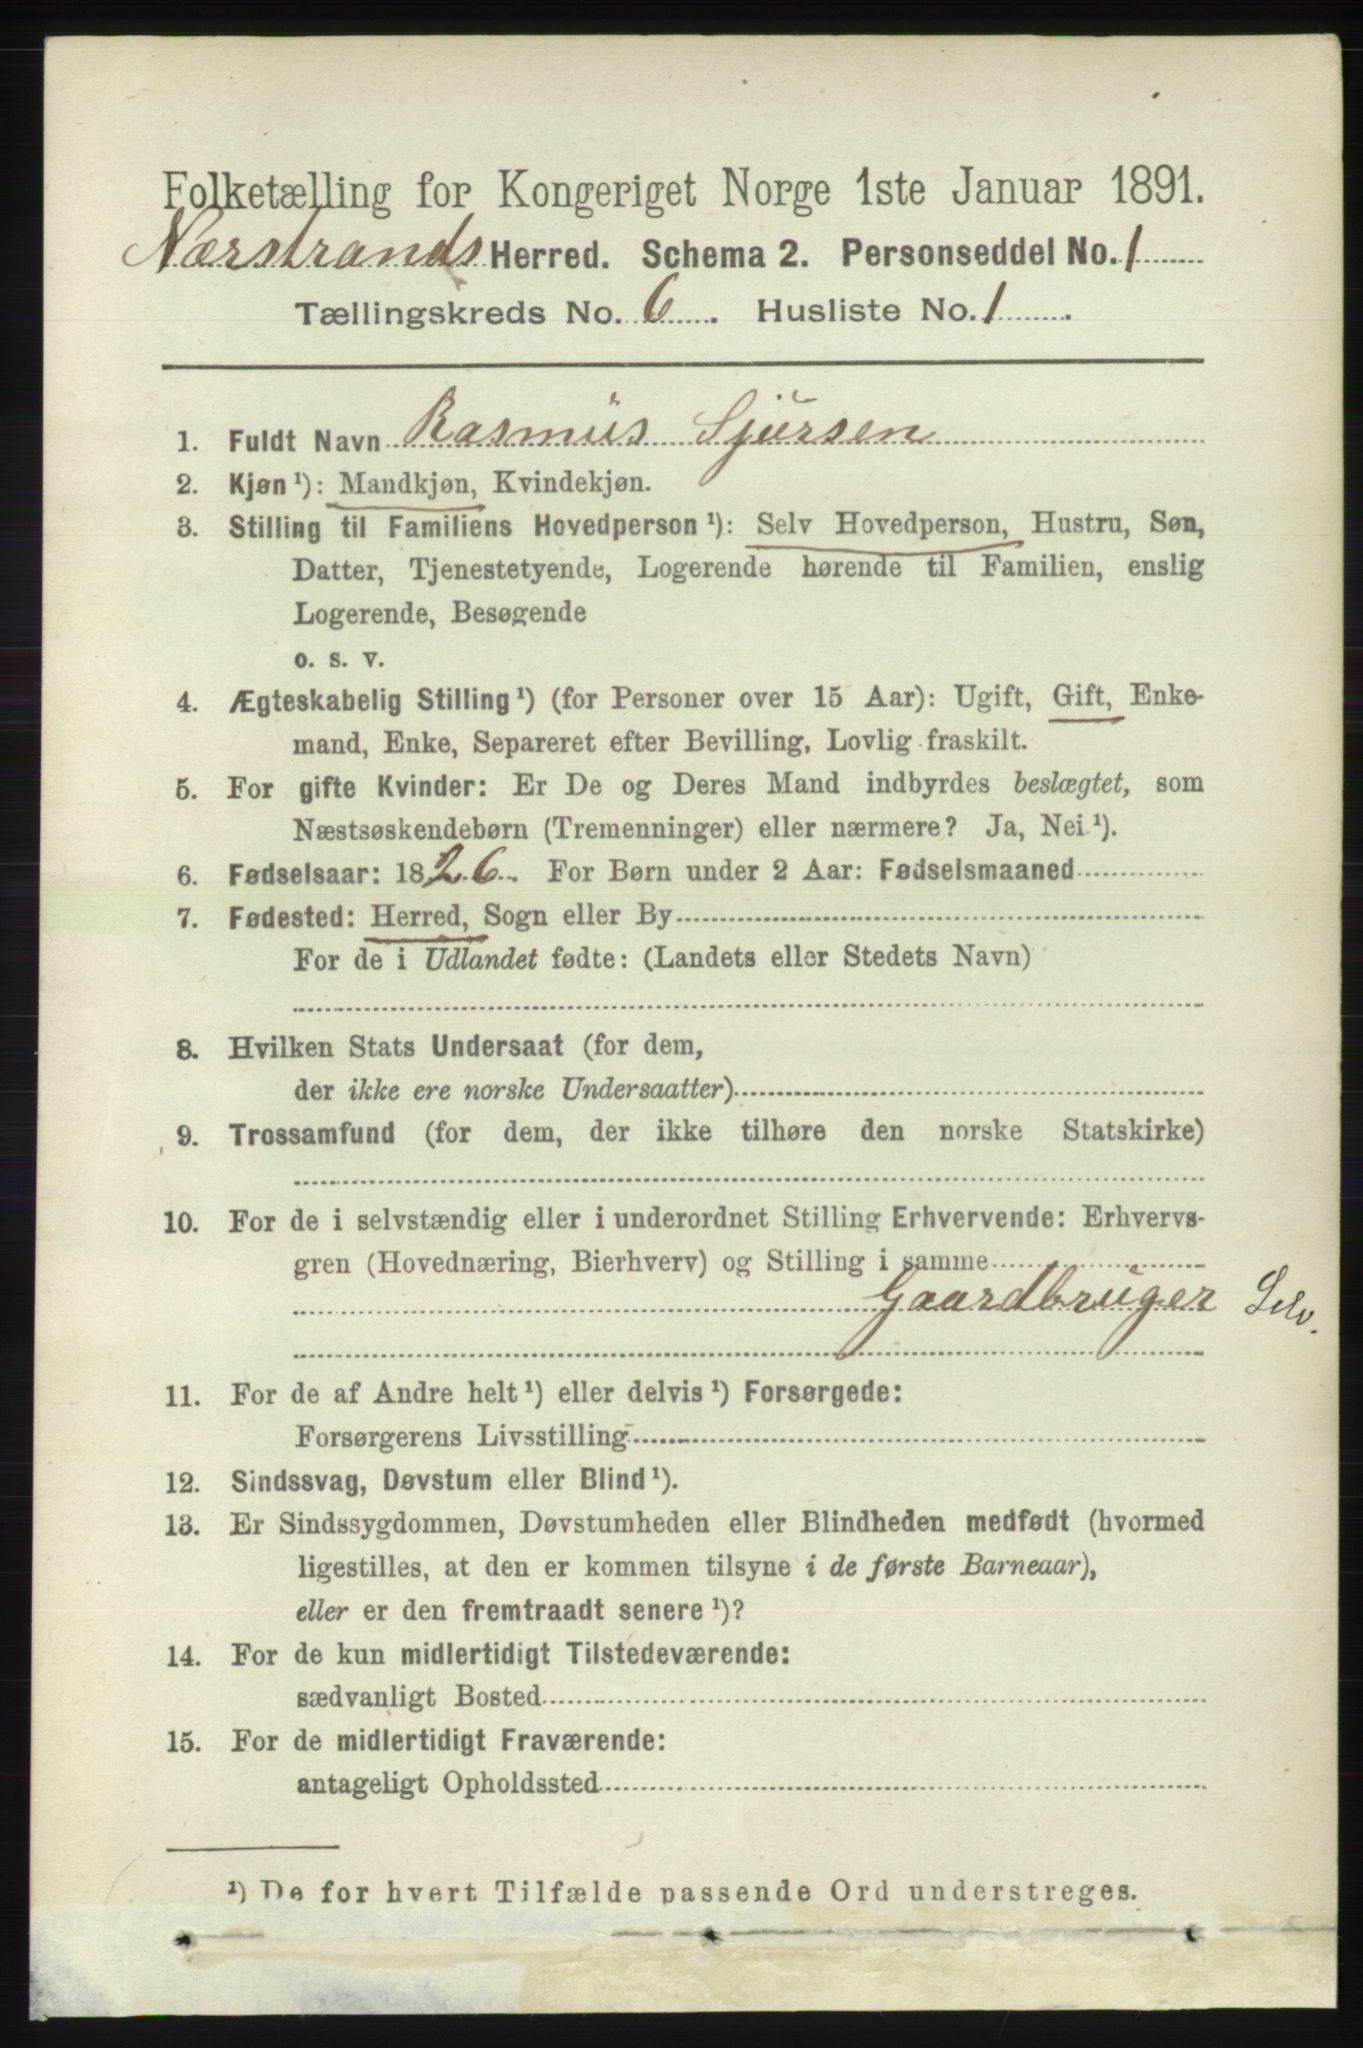 Folketælling for Kongeriget Norge 1ste Januar 1891.
Nærstrands Herred. Schema 2. Personseddel No. 1
Tællingskreds No. 6. Husliste No. 1.
1. Fuldt Navn Rasmus Sjursen
2. Kjøn ¹): Mandkjøn, Kvindekjøn.
3. Stilling til Familiens Hovedperson ¹): Selv Hovedperson, Hustru, Søn,
Datter, Tjenestetyende, Logerende hørende til Familien, enslig
Logerende, Besøgende
o. s. v.
4. Ægteskabelig Stilling ¹) (for Personer over 15 Aar): Ugift, Gift, Enke-
mand, Enke, Separeret efter Bevilling, Lovlig fraskilt.
5. For gifte Kvinder: Er De og Deres Mand indbyrdes beslægtet, som
Næstsøskendebørn (Tremenninger) eller nærmere? Ja, Nei ¹).
6. Fødselsaar: 1826. For Børn under 2 Aar: Fødselsmaaned
7. Fødested: Herred, Sogn eller By
For de i Udlandet fødte: (Landets eller Stedets Navn)
8. Hvilken Stats Undersaat (for dem,
der ikke ere norske Undersaatter)
9. Trossamfund (for dem, der ikke tilhøre den norske Statskirke)
10. For de i selvstændig eller i underordnet Stilling Erhvervende: Erhvervs-
gren (Hovednæring, Bierhverv) og Stilling i samme
Gaardbruger Selv.
11. For de af Andre helt ¹) eller delvis ¹) Forsørgede:
Forsørgerens Livsstilling
12. Sindssvag, Døvstum eller Blind ¹).
13. Er Sindssygdommen, Døvstumheden eller Blindheden medfødt (hvormed
ligestilles, at den er kommen tilsyne i de første Barneaar),
eller er den fremtraadt senere ¹)?
14. For de kun midlertidigt Tilstedeværende:
sædvanligt Bosted
15. For de midlertidigt Fraværende:
antageligt Opholdssted
¹) De for hvert Tilfælde passende Ord understreges.